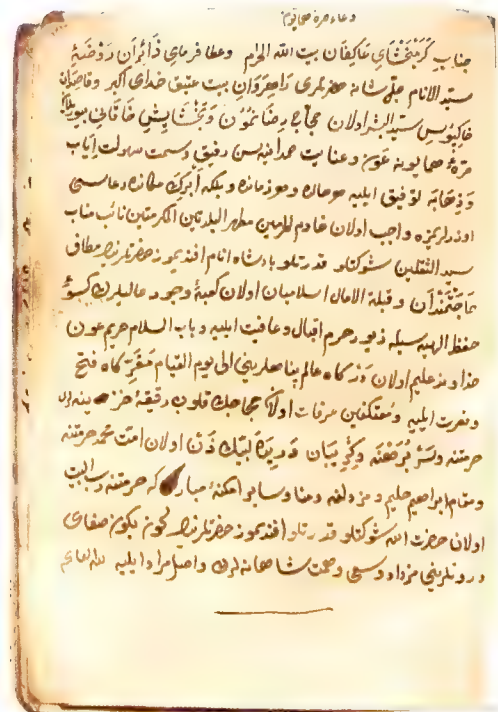 دعاء صره همايون
جناب كرمبخشاي عاكفان بيت الله الحرام وعطا فرماي ذائران روضهٔ
سيد الانام جلّ شانه حضرتلرى راهروان بيت عتيق خداى اكبر وقاصدان
خاكبوس سيد البشر اولان حجاج رضانمون وبخشايش خاقانى بيوريلان
صرهٔ همايونه عون وعنايت صمدانيه سن رفيق وسمت سهولت اياب
وذهابه توفيق ايليه هر حالده وهر زمانده وبلكه ابرك مكانده دعاسى
اوزرلريمزه واجب اولان خادم الحرمين مطهر البلدتين المكرمتين نائب مناب
سيد الثقلين شوكتلو قدرتلو پادشاه انام افنديمز حضرتلرينك مطاف
حاجتمندان وقبلة الامال اسلاميان اولان كعبهٔ وجود عاليلرك كسوهٔ
حفظ الهيه سيله زيور حرم اقبال وعافيت ايليه وباب السلام حريم عون
خداوند عليم اولان درگاه عالم پناهلرينى الى يوم القيام مقرّ گاه فتح
ونصرت ايليه ومعتكفين عرفات اولان حجاجك قلوب رقيقهٔ
حرمتنه وسر برهنه وگريبان دريده لبيك زن اولان امت محمد حرمتنه
ومقام ابراهيم حليم ومزدلفه ومنا وسائر امكنهٔ مباركه حرمتنه رب البيت
اولان حضرت الله شوكتلو قدرتلو افنديمز حضرتلرينك كون بكون صفاى
درونلرينى مزداد وسعى وهمت شاهانه لرك واصل مراد ايليه